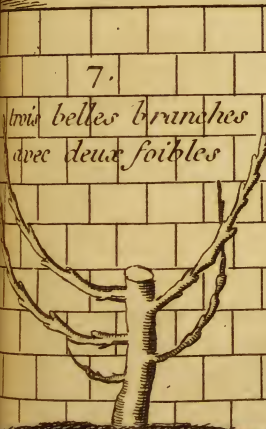 7.
trois belles branches
avec deux foibles